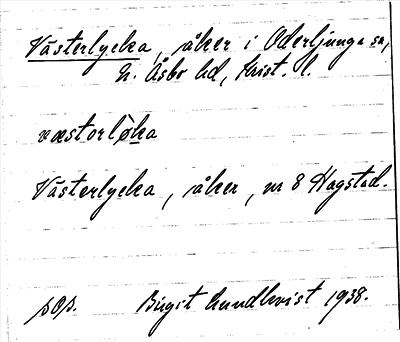 Västerlycka, åker i Oderljunga sn,
N. Åsbo hd, Krist. l.
væstorlø̀ka
Västerlycka, åker, nr 8 Hagstad.
pOp. Birgit Lundkvist 1938.